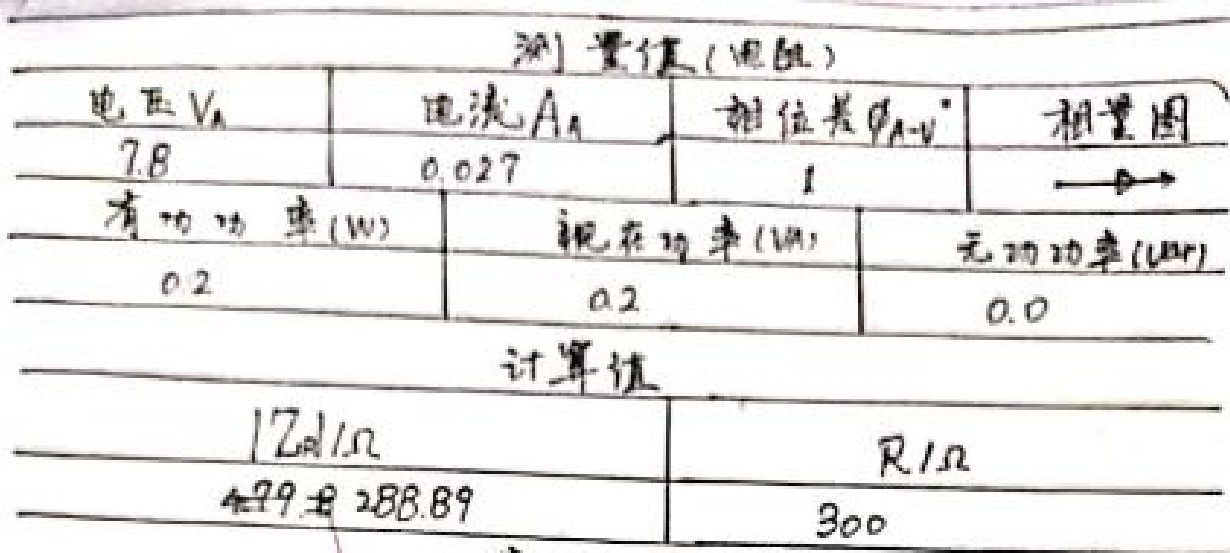 测量值(电阻)
电压 V_A 电流 A_A 相位差 φ_A-V° 相量图
7.8 0.027 1
有功功率(W) 视在功率(VA) 无功功率(Var)
0.2 0.2 0.0
计算值
|Z|/Ω R/Ω
288.89 300